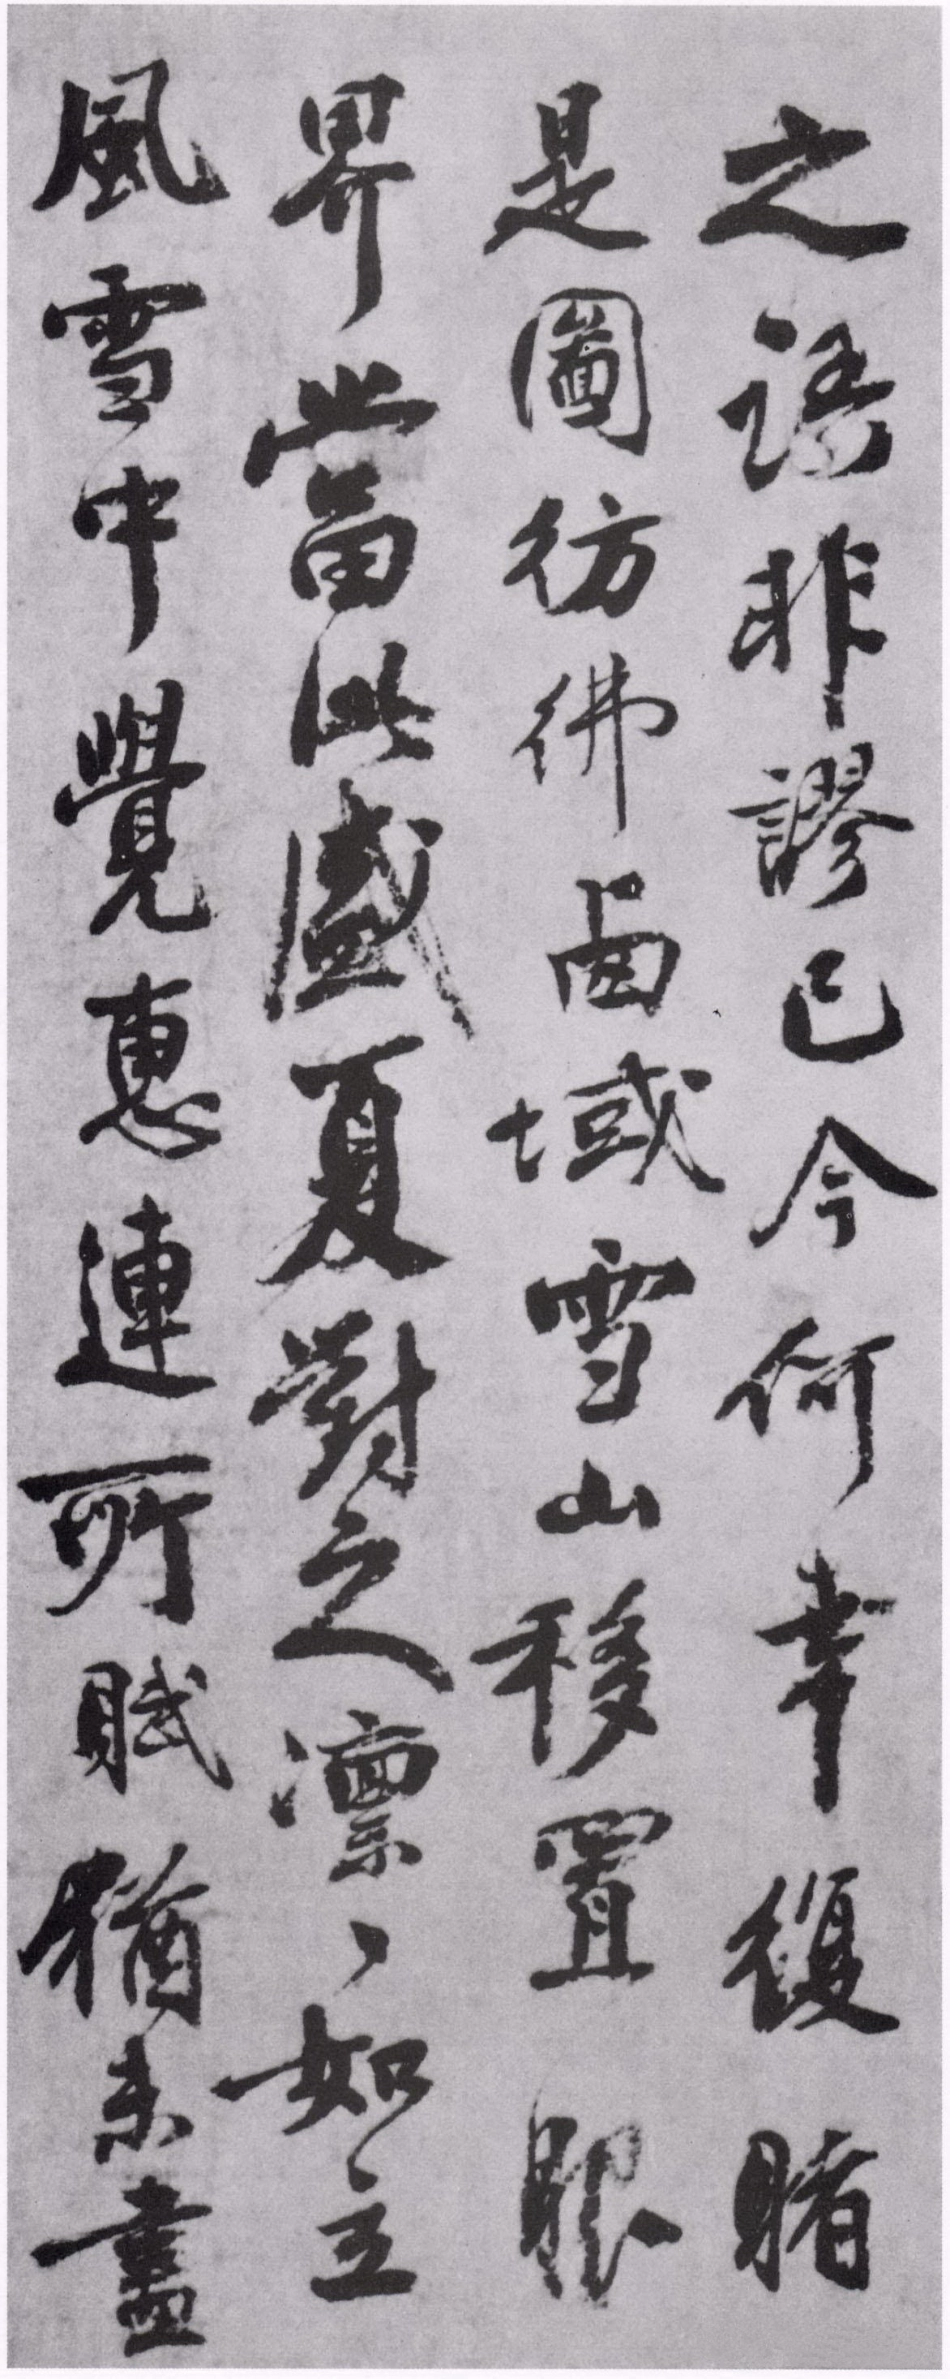 之語非謬已今何幸復睹
是圖彷彿西域雪山移置眼
界當此盛夏對之凜〻如立
風雪中覺惠連所賦猶未盡